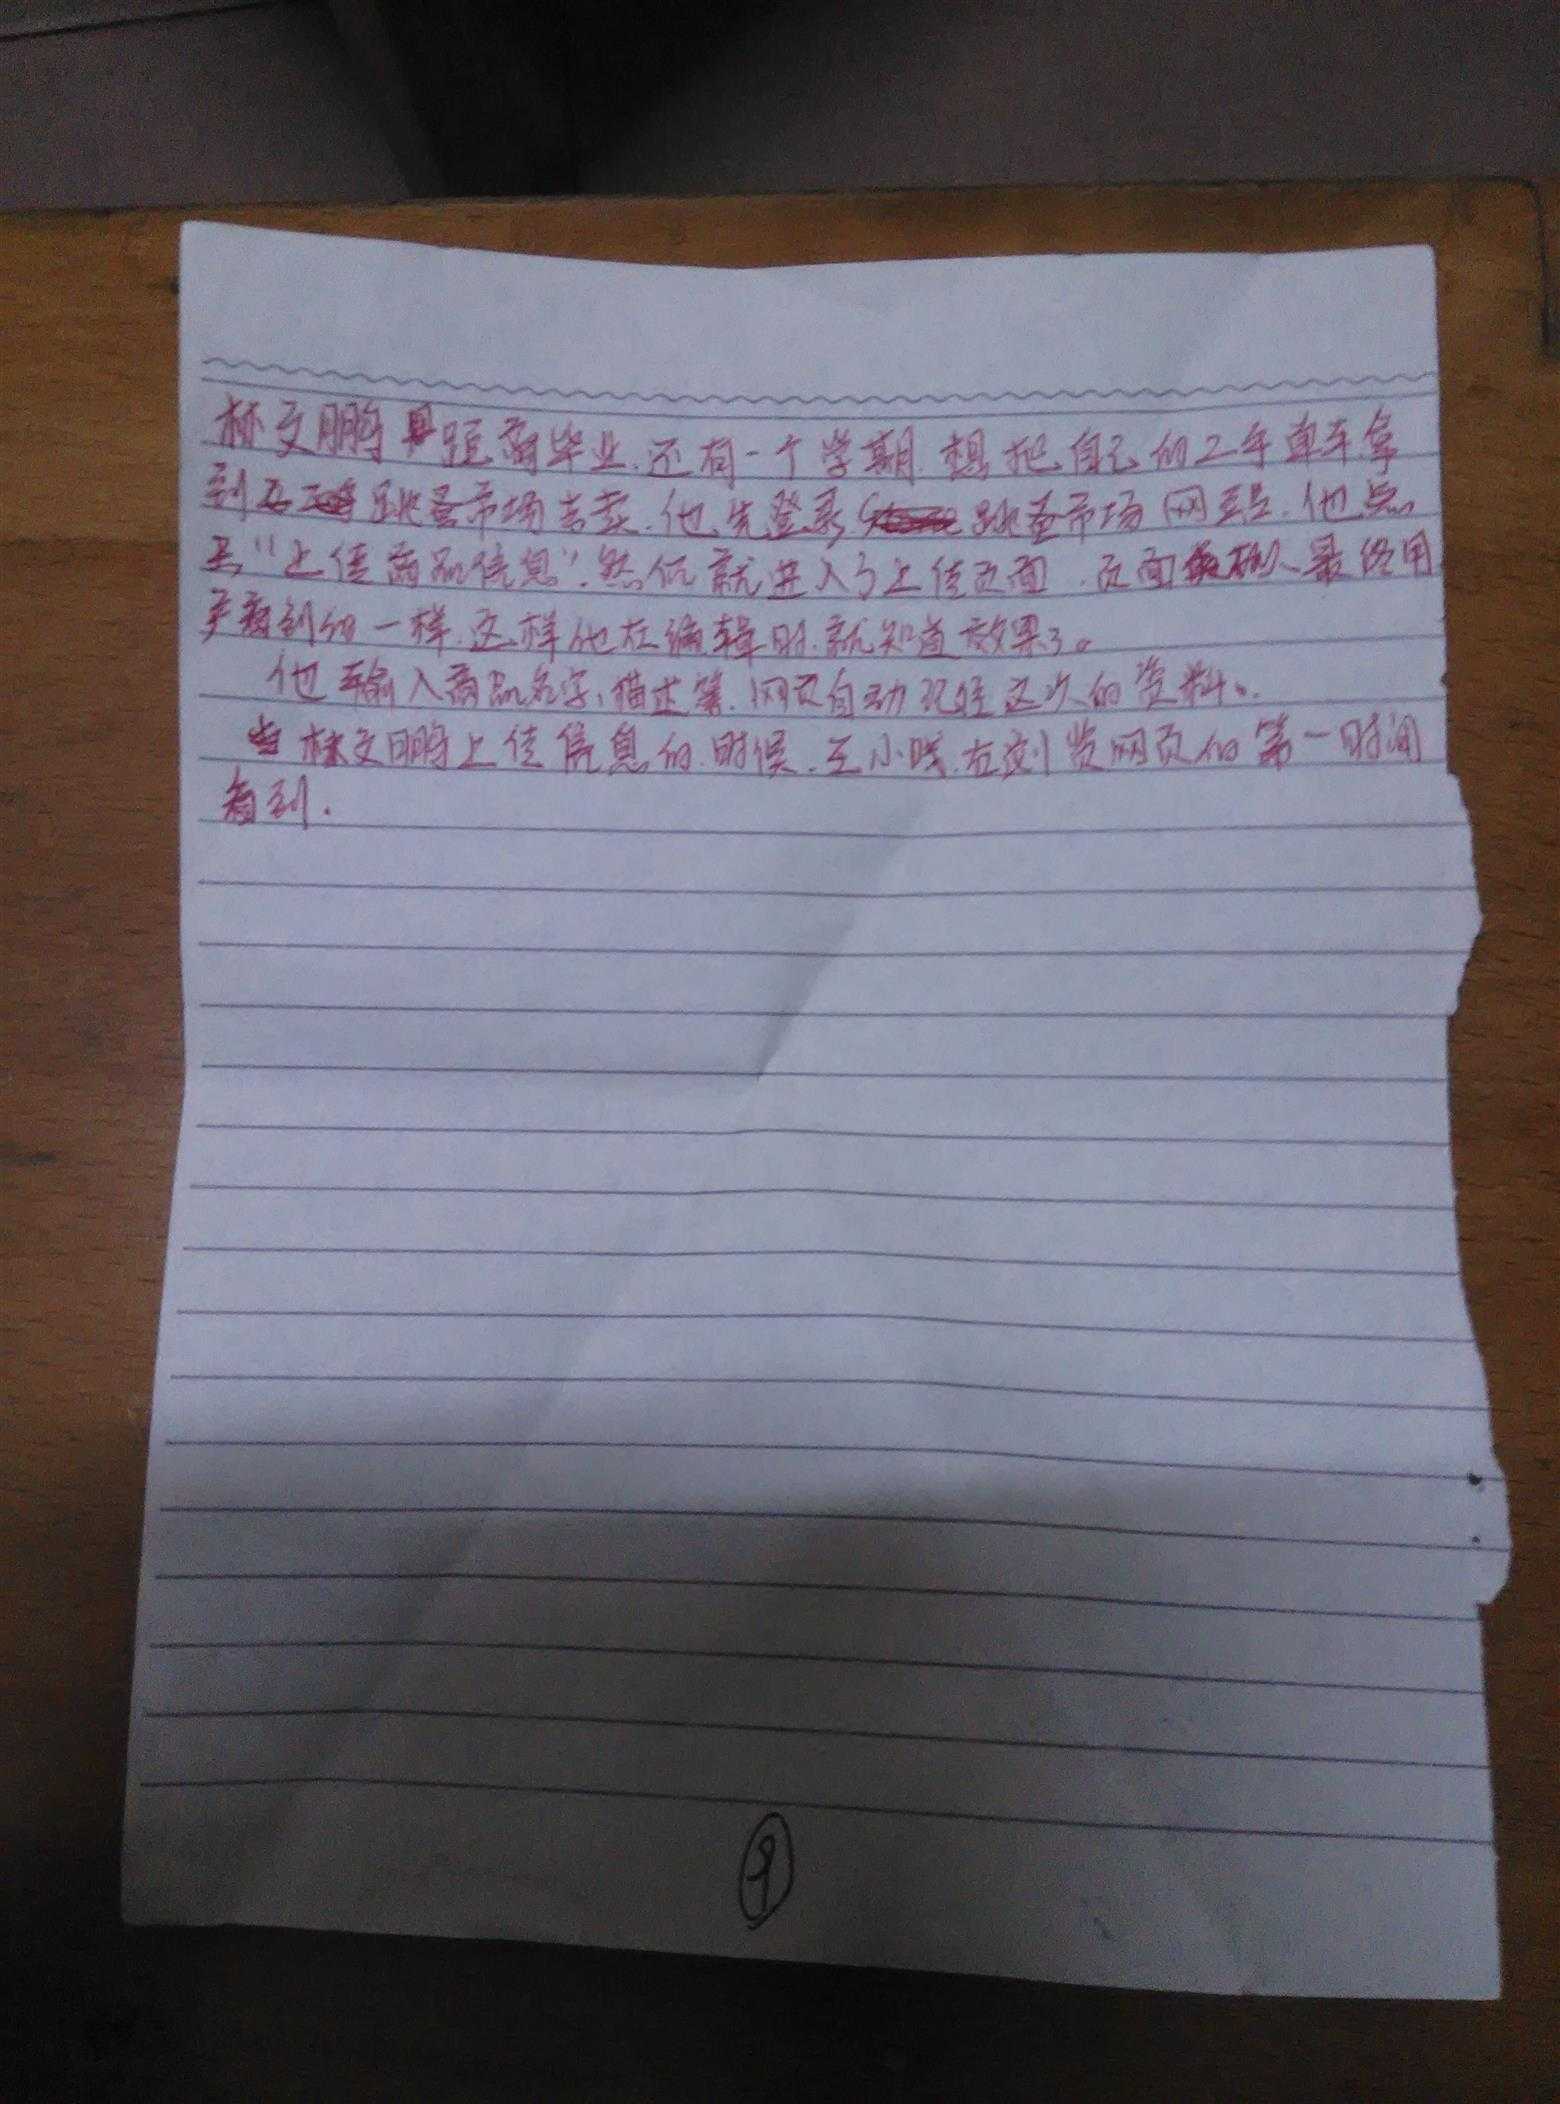 林文鹏距离毕业还有一个学期.想把自己的二手单车拿
到跳蚤市场去卖.他先登录跳蚤市场网站.他点
击"上传商品信息".然后就进入了上传页面.页面和最终用
户看到的一样.这样他在编辑时.就知道效果了。
他输入商品名字,描述等.网页自动记住这次的资料。
林文鹏上传信息的时候.王小贱在浏览网页的第一时间
看到.
⑨